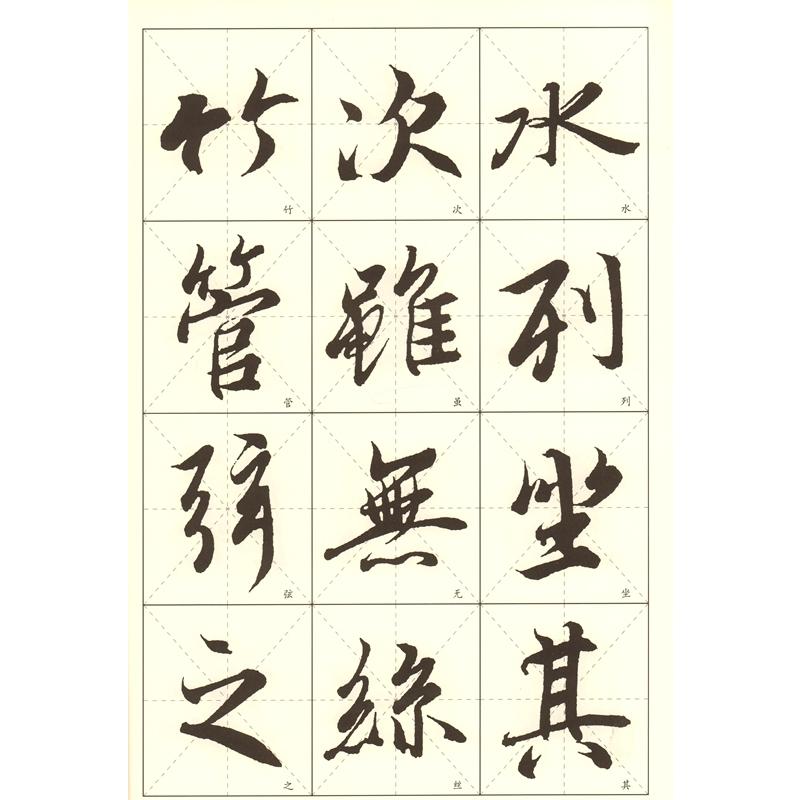 水列坐其
次雖無絲
竹管弦之
水
列
坐
其
次
虽
无
丝
竹
管
弦
之